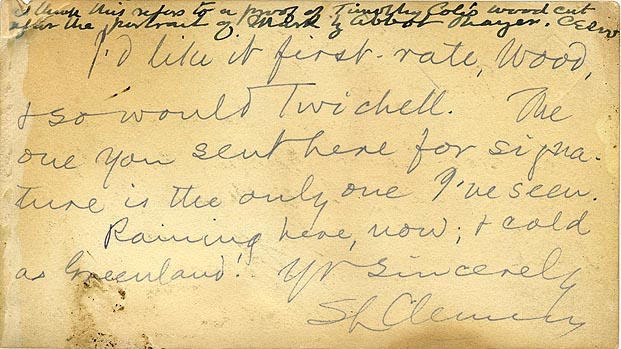 I think this refers to a proof of Timothy Cole's wood cut
after the portrait of Mark by Abbot Thayer. CESW
I'd like it first-rate, Wood,
& so would Twichell. The
one you sent here for signa-
ture is the only one I've seen.
Raining here, now; & cold
as Greenland. Yr sincerely
SLClemens